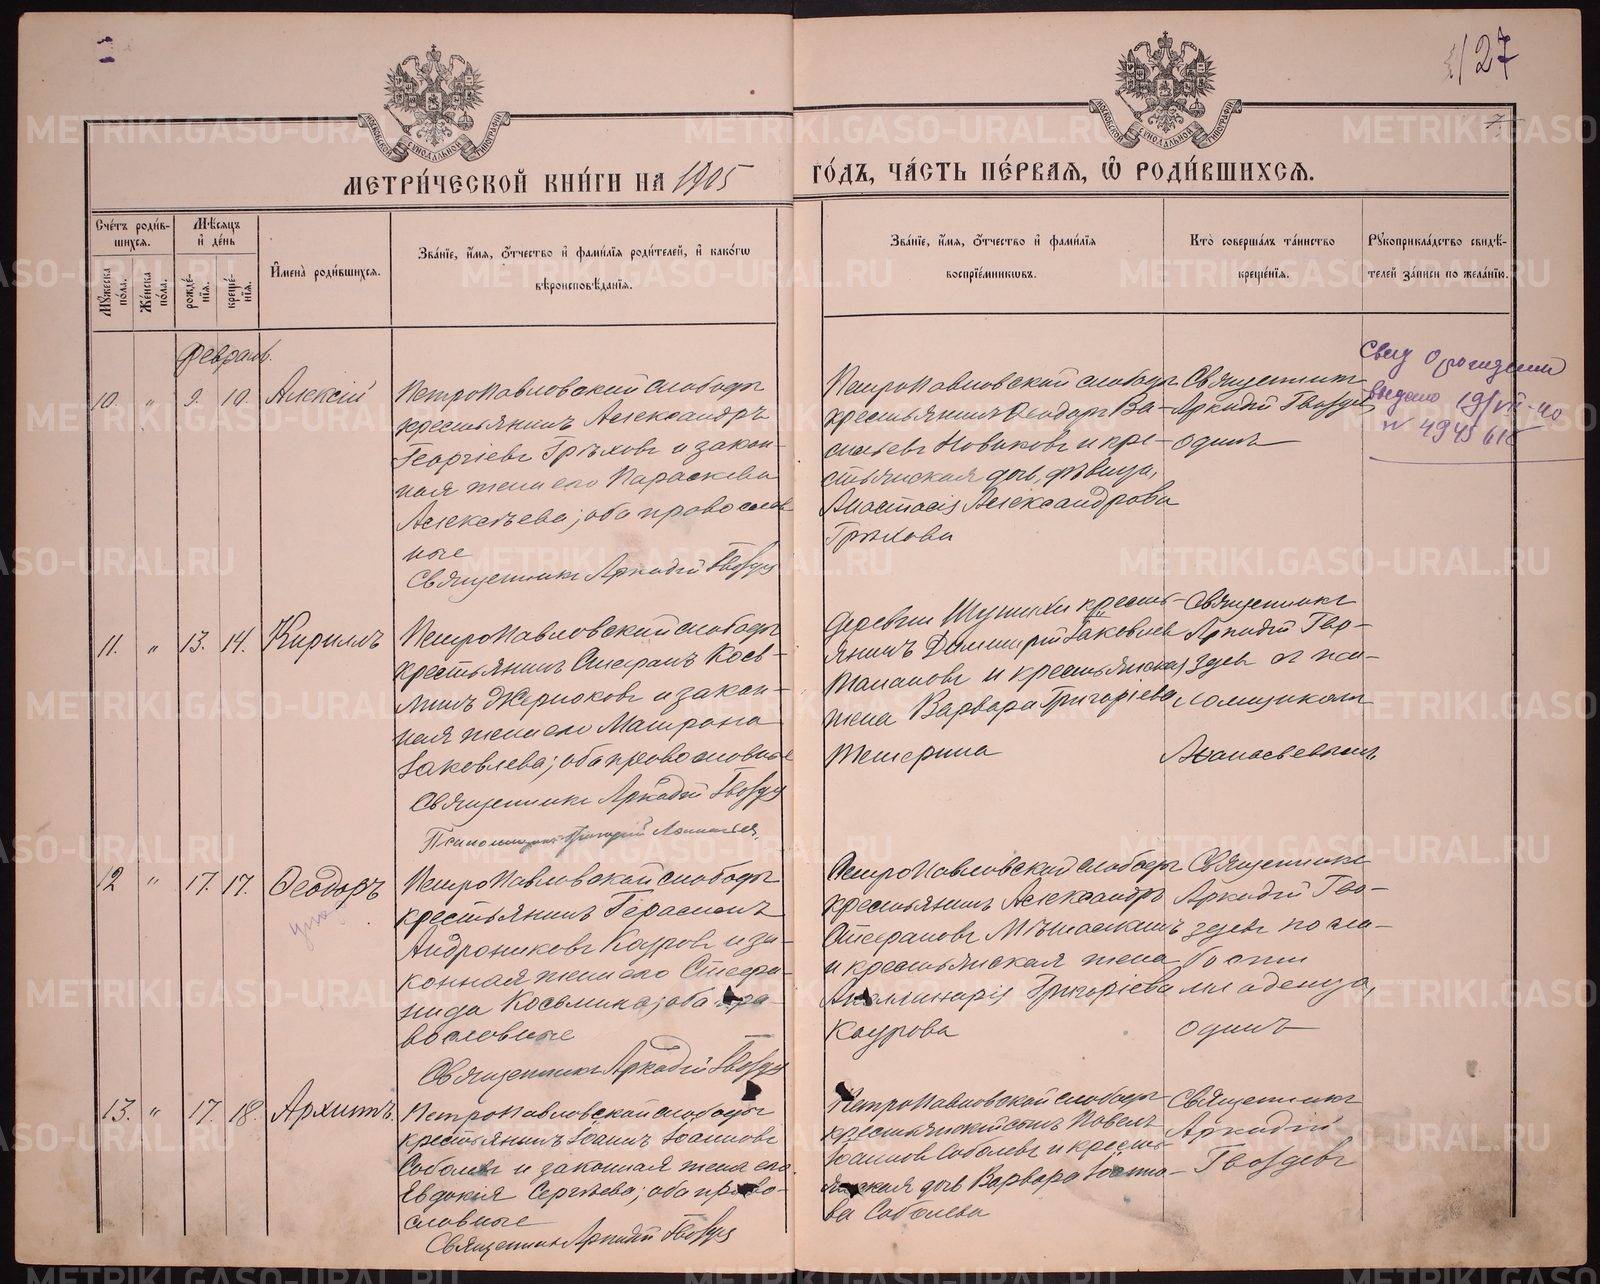 127
7
МЕТРИ́ЧЕСКОЙ КНИ́ГИ НА 1905
ГО́ДЪ, ЧА́СТЬ ПЕ́РВАЯ, Ѽ РОДИ́ВШИХСЯ.
Сче́тъ роди́вшихся.
Му́жеска по́ла.
Же́нска по́ла.
Мѣ́сяцъ и де́нь
рожде́нїя.
креще́нїя.
И҆мена̀ роди́вшихся.
Зва́нїе, и҆́мя, ѻ҆́тчество и҆ фами́лїя роди́телей, и҆ како́гѡ
вѣроисповѣ́данїя.
Зва́нїе, и҆́мя, ѻ҆́тчество и҆ фами́лїя
воспрїе́мникѡвъ.
Кто̀ соверша́лъ та́инство
креще́нїя.
Рꙋкоприкла́дство свидѣ́-
телей за́писи по жела́нїю.
Февраль.
10. " 9. 10. Алексій
Петропавловской слободы
крестьянинъ Александръ
Георгіевъ Грѣховъ и закон-
ная жена его Параскева
Алексѣева; оба православ
ные
Священникъ Аркадій Гвоздев
Петропавловской слободы
крестьянинъ Ѳеодоръ Ва-
сильевъ Новиковъ и кре-
стьянская дочь, дѣвица,
Анастасія Александрова
Грѣхова
Священникъ
Аркадій Гвоздев
одинъ
Свид о рождении
выдано 19/VII-40
№ 4945616
11. " 13. 14. Кириллъ
Петропавловской слободы
крестьянинъ Стефанъ Косьминъ и закон-
ная жена его Матрона
Іаковлева; оба православные
Священникъ Аркадій Гвоздев
Псаломщикъ Григорій
Деревни кресть-
янинъ Димитрій Іаковлев
и крестьянская
жена Варвара Григоріева
Тетерина
Священникъ
Аркадій Гвоз-
девъ с пса-
ломщикомъ
12 " 17. 17. Ѳеодоръ
Петропавловской слободы
крестьянинъ Герасимъ
Андрониковъ Кауровъ и за-
конная жена его Стефа-
нида Косьмина; оба пра-
вославные
Священникъ Аркадій Гвоздев
Петропавловской слободы
крестьянинъ Александръ
Стефановъ
и крестьянская жена
Аполлинарія Григоріева
Каурова
Священникъ
Аркадій Гво-
здевъ по сла-
бости
младенца,
одинъ
13. " 17. 18. Архиппъ.
Петропавловской слободы
крестьянинъ Іоаннъ Іоанновъ
Соболевъ и законная жена его
Евдокія Сергѣева; оба право-
славные
Священникъ Аркадій Гвоздев
Петропавловской слободы
крестьянскій сынъ Павелъ
Іоанновъ Соболевъ и кресть-
янская дочь Варвара Іоанно-
ва Соболева
Священникъ
Аркадій
Гвоздевъ
METRIKI.GASO-URAL.RU